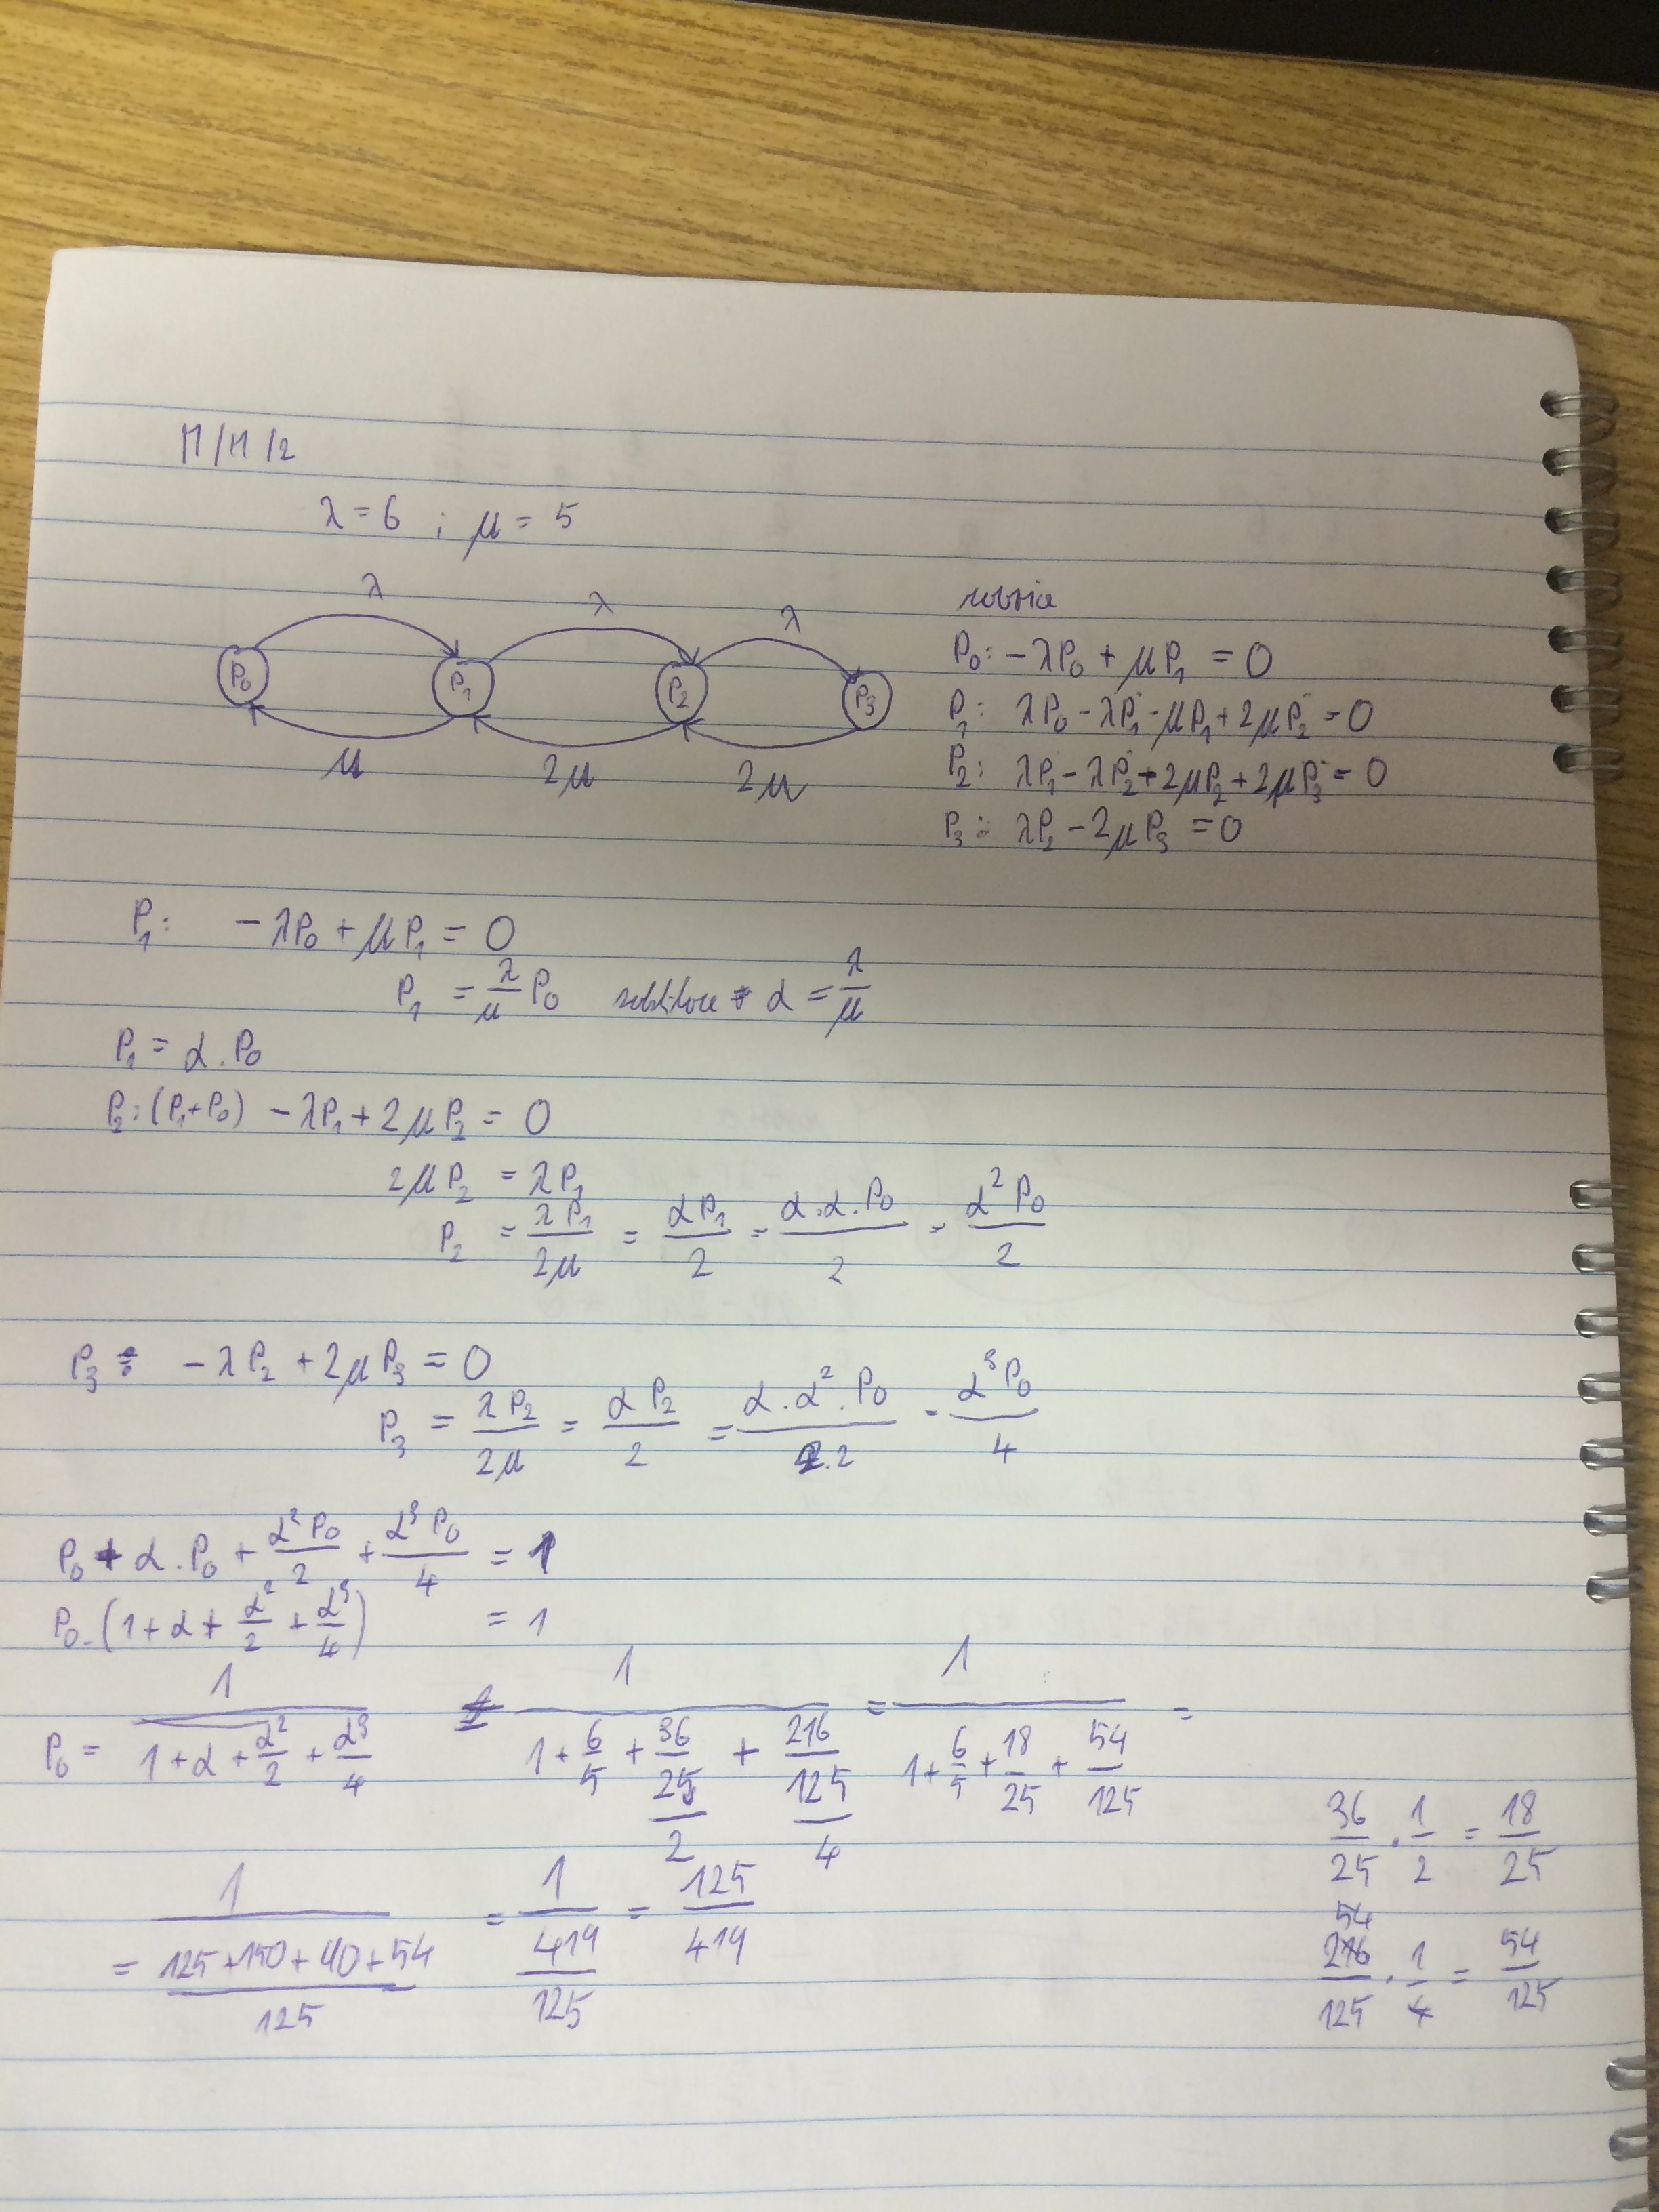 M/M/2
λ=6 ; μ=5
λ λ λ
P₀ P₁ P₂ P₃
μ 2μ 2μ
P₀: -λP₀ + μP₁ = 0
P₁: λP₀ - λP₁ - μP₁ + 2μP₂ = 0
P₂: λP₁ - λP₂ - 2μP₂ + 2μP₃ = 0
P₃: λP₂ - 2μP₃ = 0
P₁: -λP₀ + μP₁ = 0
P₁ = λ/μ P₀ α = λ/μ
P₁ = α . P₀
P₂: (P₁+P₀) -λP₁ + 2μP₂ = 0
2μP₂ = λP₁
P₂ = λP₁/2μ = αP₁/2 = α.α.P₀/2 = α²P₀/2
P₃: -λP₂ + 2μP₃ = 0
P₃ = λP₂/2μ = αP₂/2 = α.α².P₀/2.2 = α³P₀/4
P₀ + α.P₀ + α²P₀/2 + α³P₀/4 = 1
P₀.(1 + α + α²/2 + α³/4) = 1
P₀ = 1/(1 + α + α²/2 + α³/4) = 1/(1 + 6/5 + (36/25)/2 + (216/125)/4) = 1/(1 + 6/5 + 18/25 + 54/125) =
36/25 . 1/2 = 18/25
= 1/((125+150+40+54)/125) = 1/(419/125) = 125/419
54
216/125 . 1/4 = 54/125